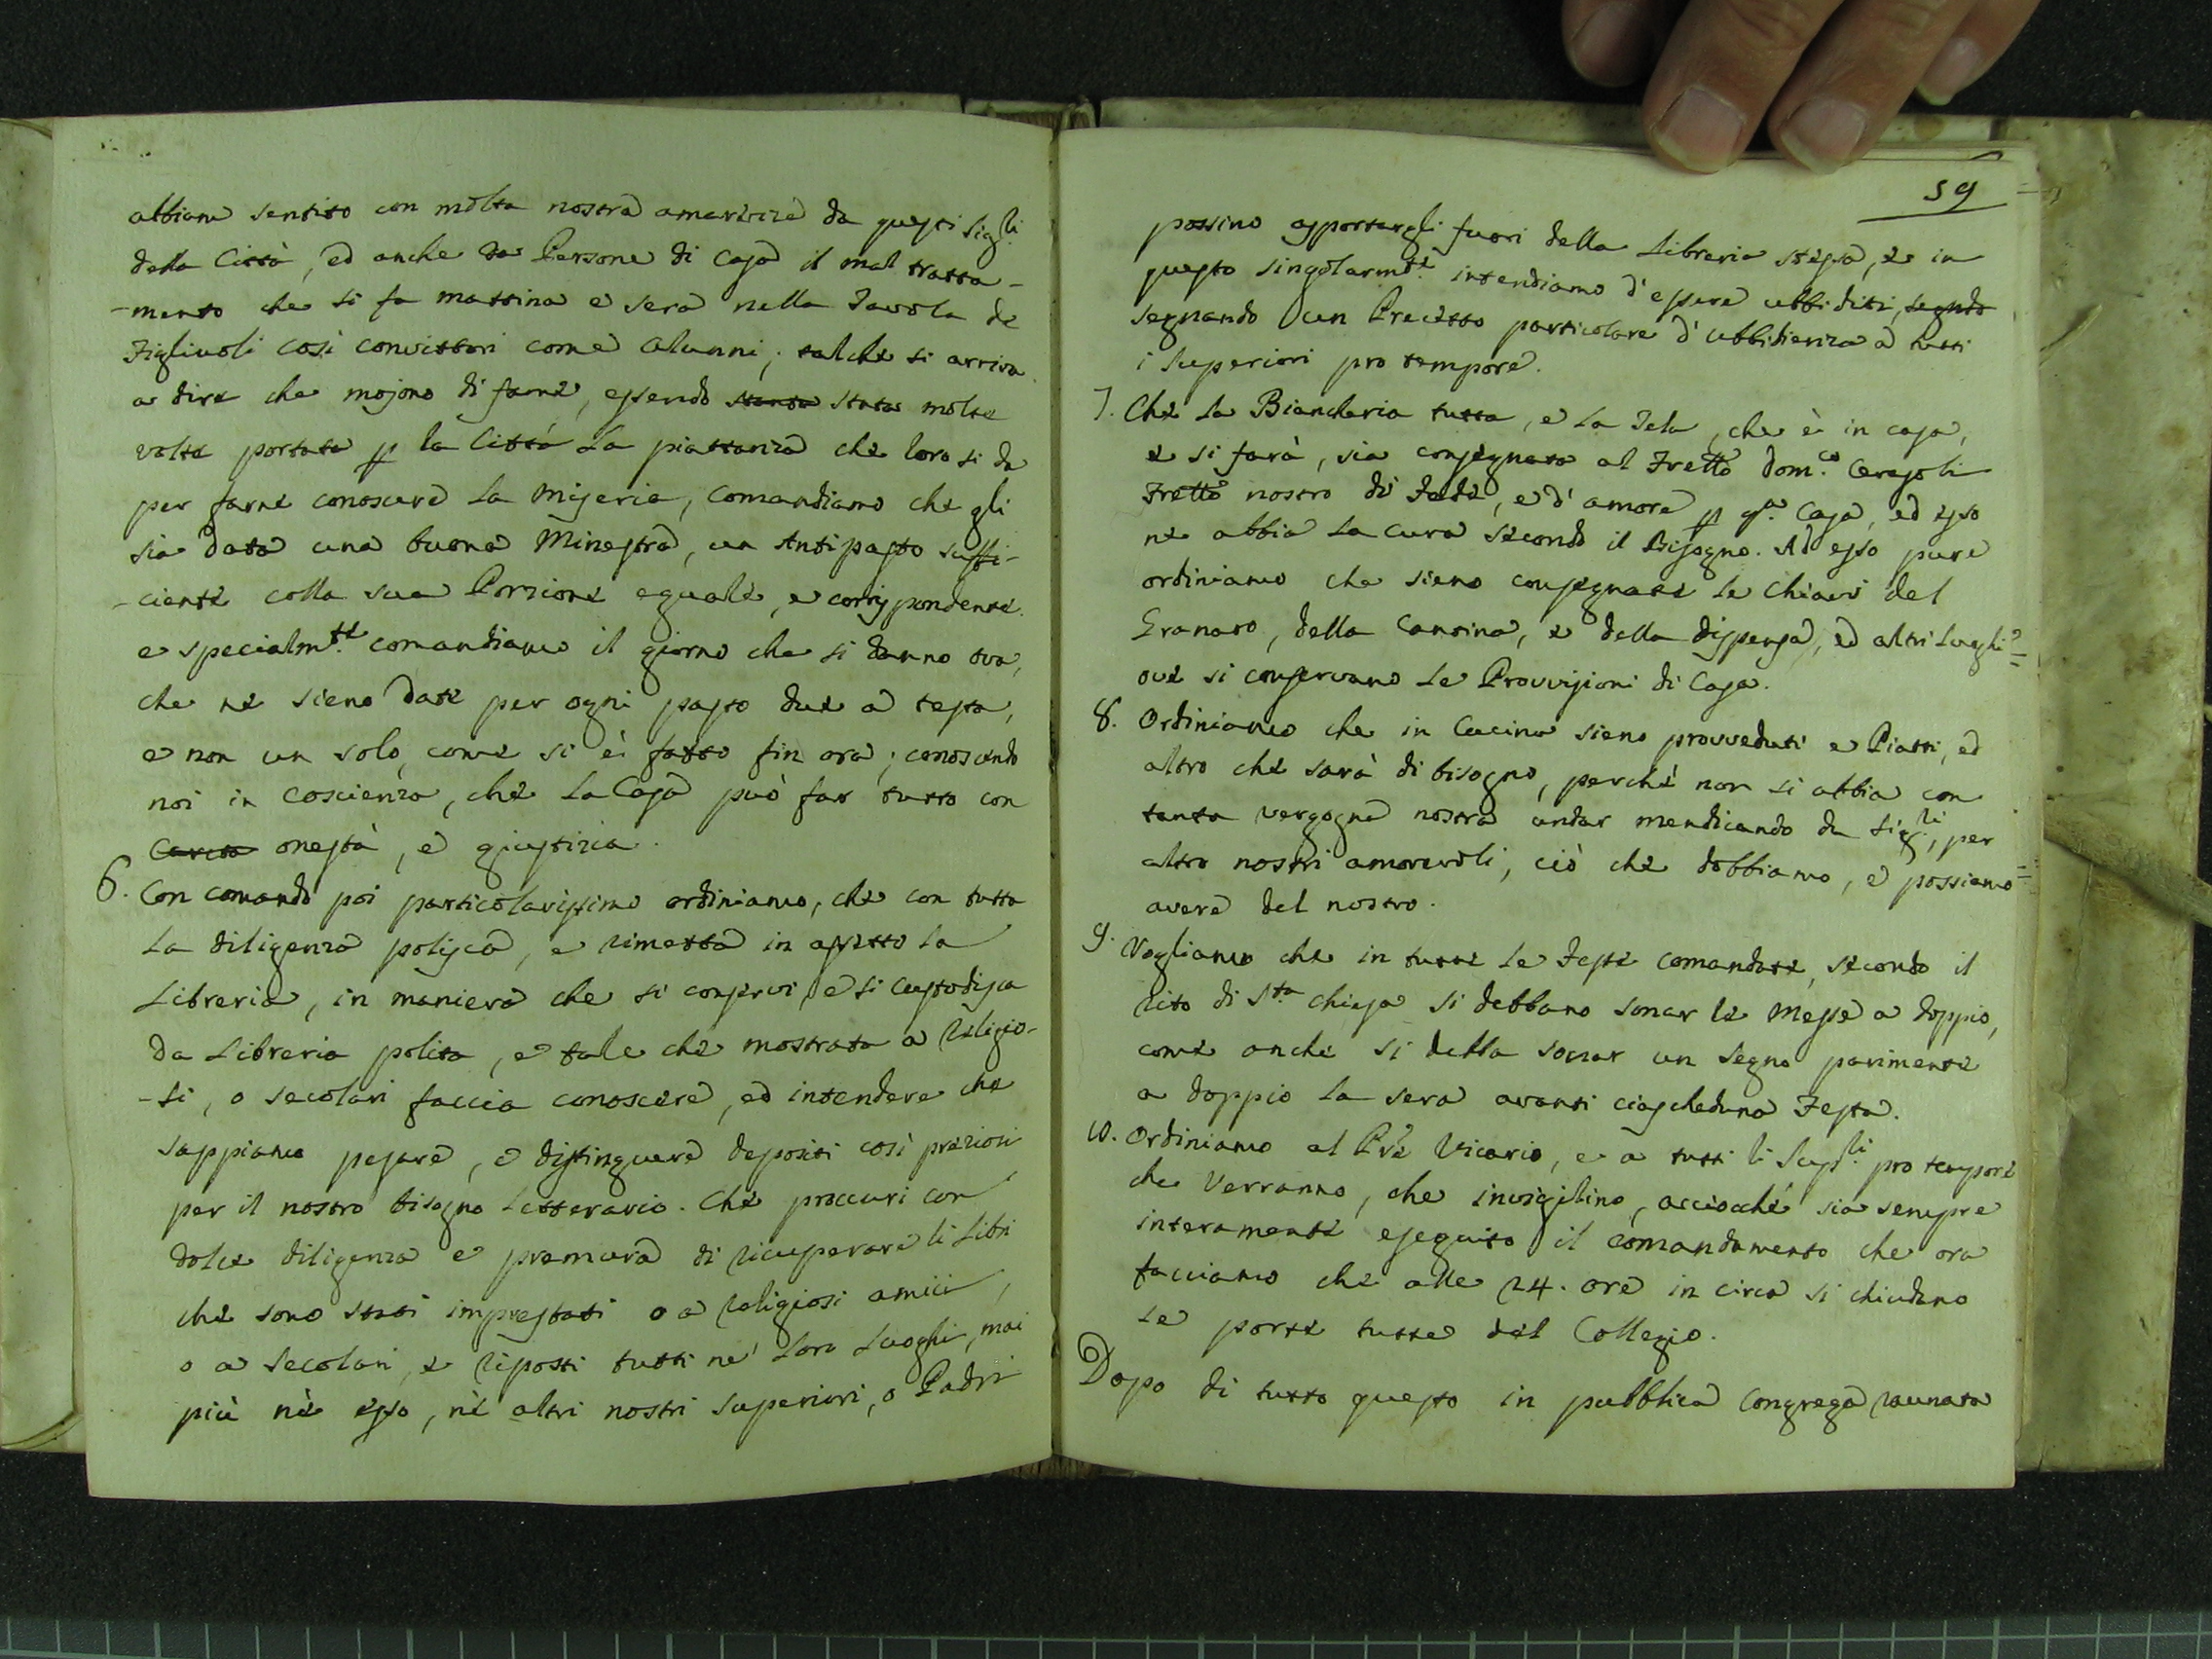 abbiamo sentito con molta nostra amarezza da questi Sig.li
della Città, ed anche da Persone di Casa il mal tratta-
-mento che si fa mattina e sera nella Tavola de
Figliuoli così convittori come Alunni; talche si arriva
a dire che mojono di fame, essendo stata molte
volte portata p la Città la piattanza che loro si da
per farne conoscere la miseria, Comandiamo che gli
sia data una buona Minestra, un Antipasto suffi-
-ciente colla sua Porzione eguale, e corrispondente.
e specialm.te comandiamo il giorno che si danno ova,
che ne sieno date per ogni pasto due a testa,
e non un solo, come si è fatto fin ora; conoscendo
noi in coscienza, che la Casa può far tutto con
Carità onestà, e giustizia.
6. Con comando poi particolarissimo ordiniamo, che con tutta
la diligenza polisca, e rimetta in assetto la
Libreria, in maniera che si conservi, e si custodisca
da Libreria polita, e tale che mostrata a Religio-
-si, o secolari faccia conoscere, ed intendere che
sappiamo pesare, e distinguere depositi così preziosi
per il nostro bisogno Letterario. Che proccuri con
dolce diligenza e premura di ricuperare li Libri
che sono stati imprestati o a Religiosi amici,
o a Secolari, e riposti tutti ne' loro Luoghi, mai
più nè esso, nè altri nostri Superiori, o Padri
59
possino asportargli fuori della Libreria stessa, e in
questo singolarm.te intendiamo d'essere ubbiditi, segndo
segnando un Precetto particolare d'ubbidienza a tutti
i Superiori pro tempore.
7. Che la Biancheria tutta, e la Tela, che è in casa,
e si farà, sia consegnata al Frello Dom.co Ceresoli
Frello nostro di Fede, e d'amore p q.ta Casa, ed esso
ne abbia la cura secondo il Bisogno. Ad esso pure
ordiniamo che sieno consegnate le Chiavi del
Granaro, della Cantina, e della dispensa, ed altri Luoghi
ove si conservano le Provvisioni di Casa.
8. Ordiniamo che in Cucina sieno provveduti e Piatti, ed
altro che sarà di bisogno, perchè non si abbia con
tanta vergogna nostra andar mendicando da Sig.li, per
altro nostri amorevoli, ciò che dobbiamo, e possiamo
avere del nostro.
9. Vogliamo che in tutte le Feste comandate, secondo il
Rito di S.ta Chiesa si debbano sonar le Messe a doppio,
come anche si debba sonar un Segno parimente
a doppio la sera avanti ciascheduna Festa.
10. Ordiniamo al Pre Vicario, e a tutti li Sup.li pro tempore
che Verranno, che invigilino, acciocchè sia sempre
interamente eseguito il comandamento che ora
facciamo che alle 24. ore in circa si chiudano
le porte tutte del Collegio.
Dopo di tutto questo in pubblica Congrega raunata